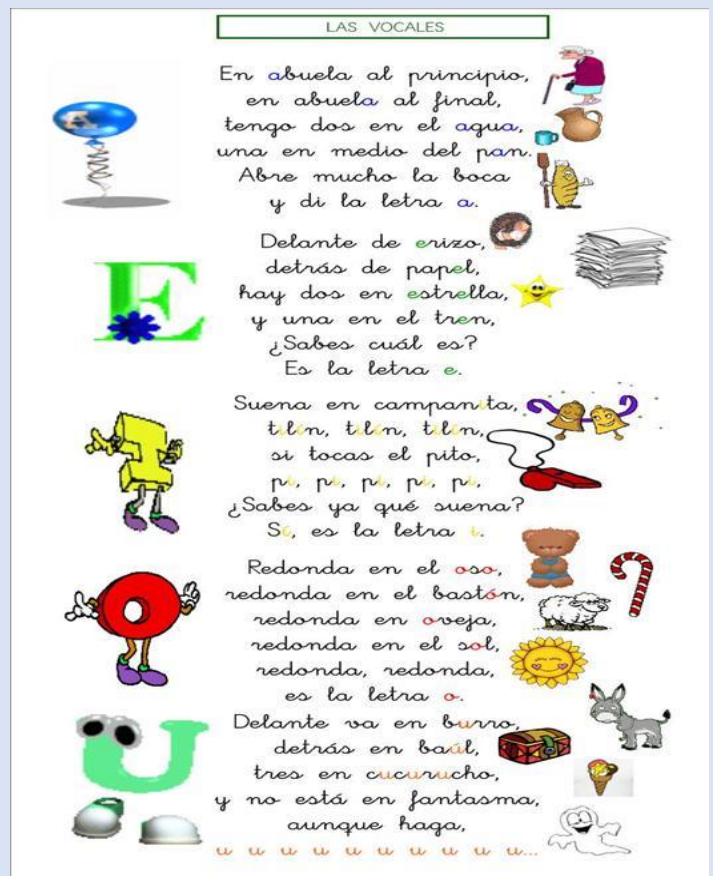 LAS VOCALES
A
En abuela al principio,
en abuela al final,
tengo dos en el agua,
una en medio del pan.
Abre mucho la boca
y di la letra a.
E
Delante de erizo,
detrás de papel,
hay dos en estrella,
y una en el tren,
¿Sabes cuál es?
Es la letra e.
I
Suena en campanita,
tilín, tilín, tilín,
si tocas el pito,
pi, pi, pi, pi, pi,
¿Sabes ya qué suena?
Sí, es la letra i.
O
Redonda en el oso,
redonda en el bastón,
redonda en oveja,
redonda en el sol,
redonda, redonda,
es la letra o.
U
Delante va en burro,
detrás en baúl,
tres en cucurucho,
y no está en fantasma,
aunque haga,
u u u u u u u u u u...